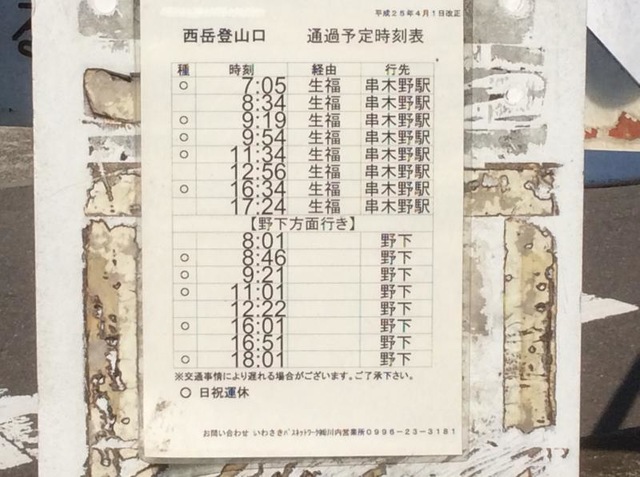 平成25年4月1日改正
西岳登山口 通過予定時刻表
種 時刻 経由 行先
○ 7:05 生福 串木野駅
8:34 生福 串木野駅
○ 9:19 生福 串木野駅
○ 9:54 生福 串木野駅
○ 11:34 生福 串木野駅
12:56 生福 串木野駅
○ 16:34 生福 串木野駅
17:24 生福 串木野駅
【野下方面行き】
8:01 野下
○ 8:46 野下
○ 9:21 野下
○ 11:01 野下
12:22 野下
○ 16:01 野下
16:51 野下
○ 18:01 野下
※交通事情により遅れる場合がございます。ご了承下さい。
○ 日祝運休
お問い合わせ いわさきバスネットワーク㈱川内営業所0996-23-3181